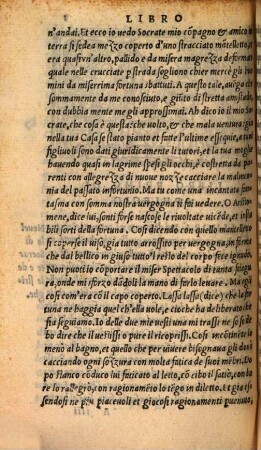 LIBRO
n'andai. Et ecco io vedo Socrate mio cõpagno & amico ĩ
terra si sedea mezzo coperto d'uno stracciato mãtelletto,
era quasi un'altro, pallido e da misera magrezza deforma
quale nelle crucciate p strada sogliono chier mercé gli huo
mini da miserrima fortuna sbattuti. A questo tale, auẽga che
sommamente da me conosciuto, e giũto di stretta amistade
con dubbia mente me gli approssimai. Ah dico io il mio So
crate, che cosa è quest'altra volto, & che mala ventura? già
nella tua Casa se stato pianto et fatte l'ultime essequie, à tuoi
figliuoli sono dati giuridicamente li tutori, et la tua moglie
hauendo quasi in lagrime spesi gli occhi, è costretta da pa
renti con allegrezza di nuoue nozze cacciare la malenco
nia del passato infortunio. Ma tu come una incantata fan
tasma con somma nostra vergogna ti fai vedere. O Aristo
mene, dice lui, sonti forse nascose le riuoltate vicẽde, et insta
bili sorti della fortuna. Cosi dicendo con quello mantelletto
si coperse il viso, già tutto arrossito per vergogna, in fin
che dal bellico in giuso tutto'l resto del corpo fece ignudo.
Non puoti io cõportare il miser Spettacolo di tanta pouer
ra, onde mi sforzo dãdoli la mano di farlo leuare. Ma egli
cosi com'era il capo coperto. Lassa lassa (dice) che la fortu
ne ne haggia quel ch'ella vole, e cioche ha deliberato che
sia seguiamo. Io delle due mie uesti una mi trassi di dosso per
che non dirò il uestissi o pure il ricopersi. Cosi uestito il
menò al bagno, et quello che per viuere bisognaua gli dan
cacciando ogni sozzura con molta fatica de suoi mẽbri. Do
po stanco cõduco lui faticato al letto, cõ cibo il satio, con
re lo rallegro, con ragionamẽto lo tẽgo in diletto. Et già i
sendosi ne piu piaceuoli et giocosi ragionamenti peruenuto,